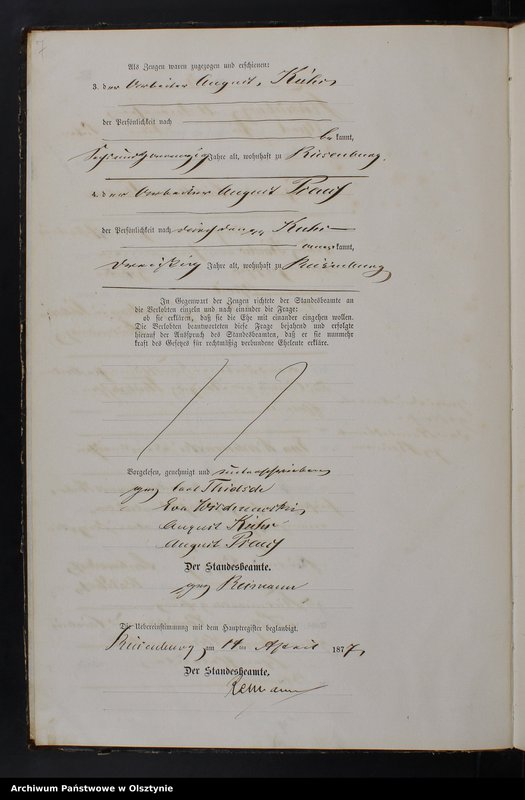 7
Als Zeugen waren zugezogen und erschienen:
3. der Arbeiter August Kühn
der Persönlichkeit nach
bekannt,
Sechsundzwanzig Jahre alt, wohnhaft zu Riesenburg.
4. der Arbeiter August
der Persönlichkeit nach durch den Kühn
anerkannt,
dreißig Jahre alt, wohnhaft zu Riesenburg
In Gegenwart der Zeugen richtete der Standesbeamte an
die Verlobten einzeln und nach einander die Frage:
ob sie erklären, daß sie die Ehe mit einander eingehen wollen.
Die Verlobten beantworteten diese Frage bejahend und erfolgte
hierauf der Ausspruch des Standesbeamten, daß er sie nunmehr
kraft des Gesetzes für rechtmäßig verbundene Eheleute erkläre.
Vorgelesen, genehmigt und unterschrieben
gez Carl
Eva
August Kühn
August
Der Standesbeamte.
gez Reimann
Die Uebereinstimmung mit dem Hauptregister beglaubigt.
Riesenburg, am 14 ten April 1877
Der Standesbeamte.
Reimann
Archiwum Państwowe w Olsztynie